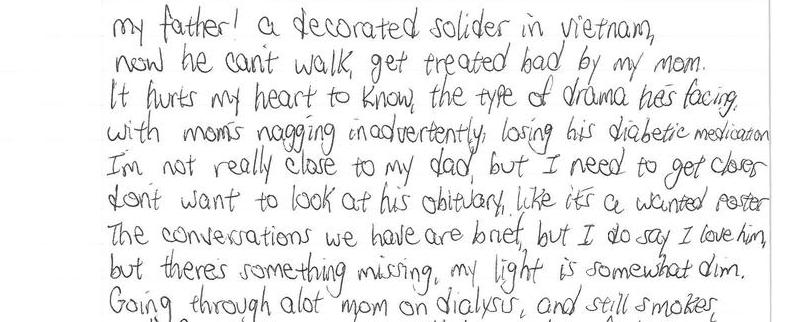 my father! a decorated solider in vietnam,
now he can't walk, get treated bad by my mom.
It hurts my heart to know, the type of drama he's facing.
with mom's nagging inadvertently, losing his diabetic medication
I'm not really close to my dad, but I need to get closer
don't want to look at his obituary, like it's a wanted poster
The conversations we have are brief, but I do say I love him,
but there's something missing, my light is somewhat dim.
Going through alot mom on dialysis, and still smokes,